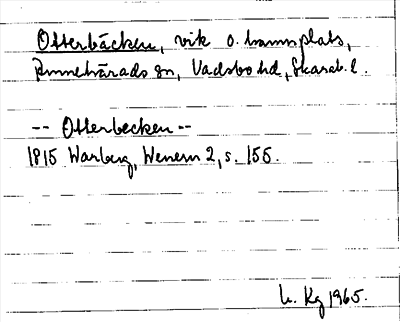 Otterbäcken, vik o. hamnplats,
Amnehärads sn, Vadsbo hd, Skarab. l.
-- Otterbecken --
1815 Warberg, Wenern 2, s. 155.
h. Kg 1965.